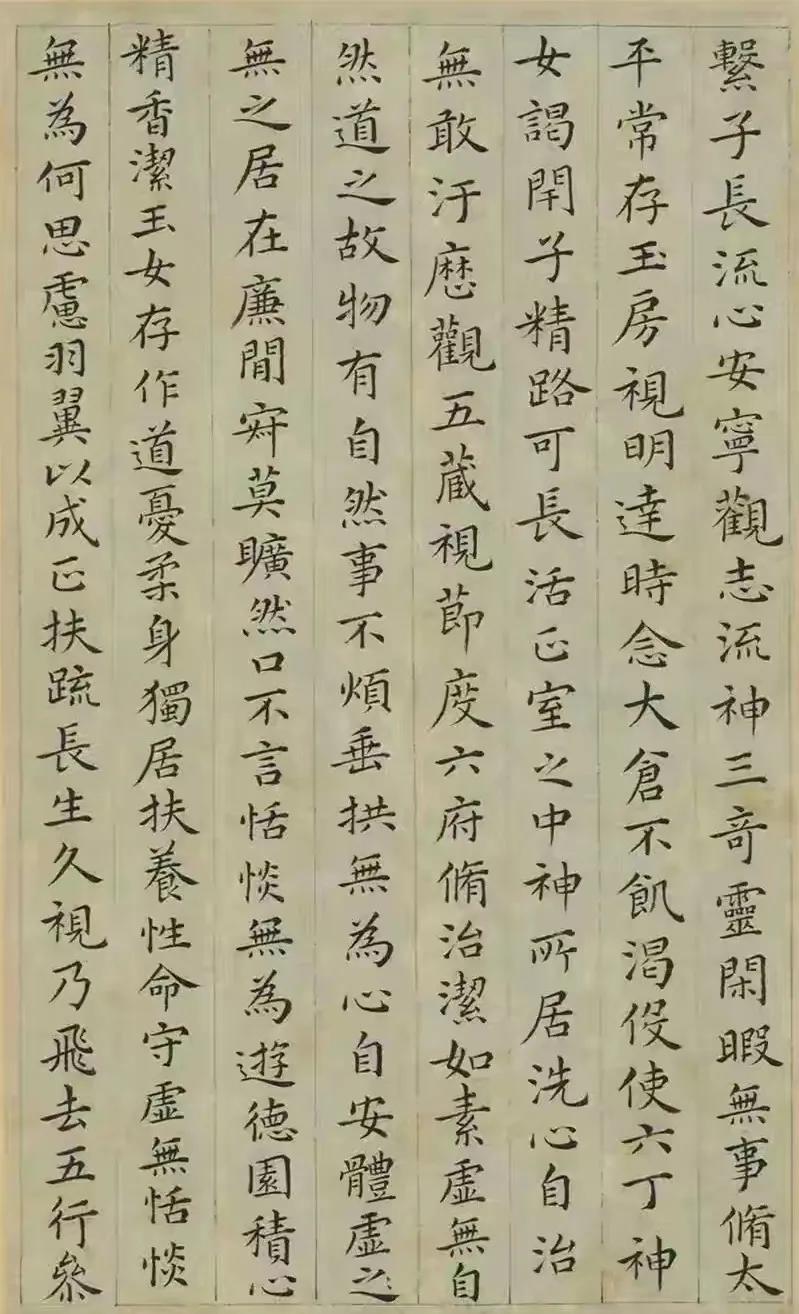 繫子長流心安寧觀志流神三奇靈閑暇無事脩太
平常存玉房視明達時念大倉不飢渴伇使六丁神
女謁閇子精路可長活正室之中神所居洗心自治
無敢汙歷觀五藏視節度六府脩治潔如素虛無自
然道之故物有自然事不煩垂拱無為心自安體虛之
無之居在廉間寂莫曠然口不言恬惔無為遊德園積心
精香潔玉女存作道憂柔身獨居扶養性命守虛無恬惔
無為何思慮羽翼以成正扶疏長生久視乃飛去五行參